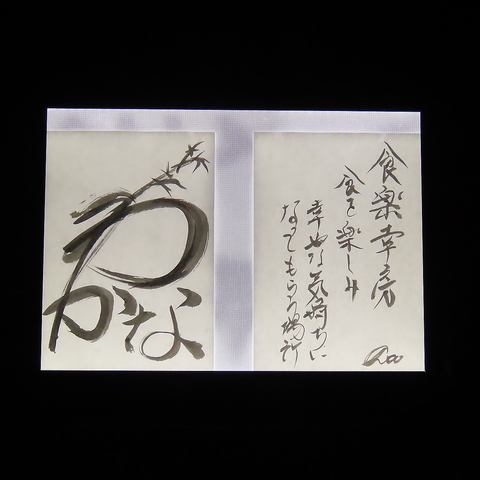 わかな
食楽幸房
食を楽しみ
幸せな気持ちに
なってもらう場所